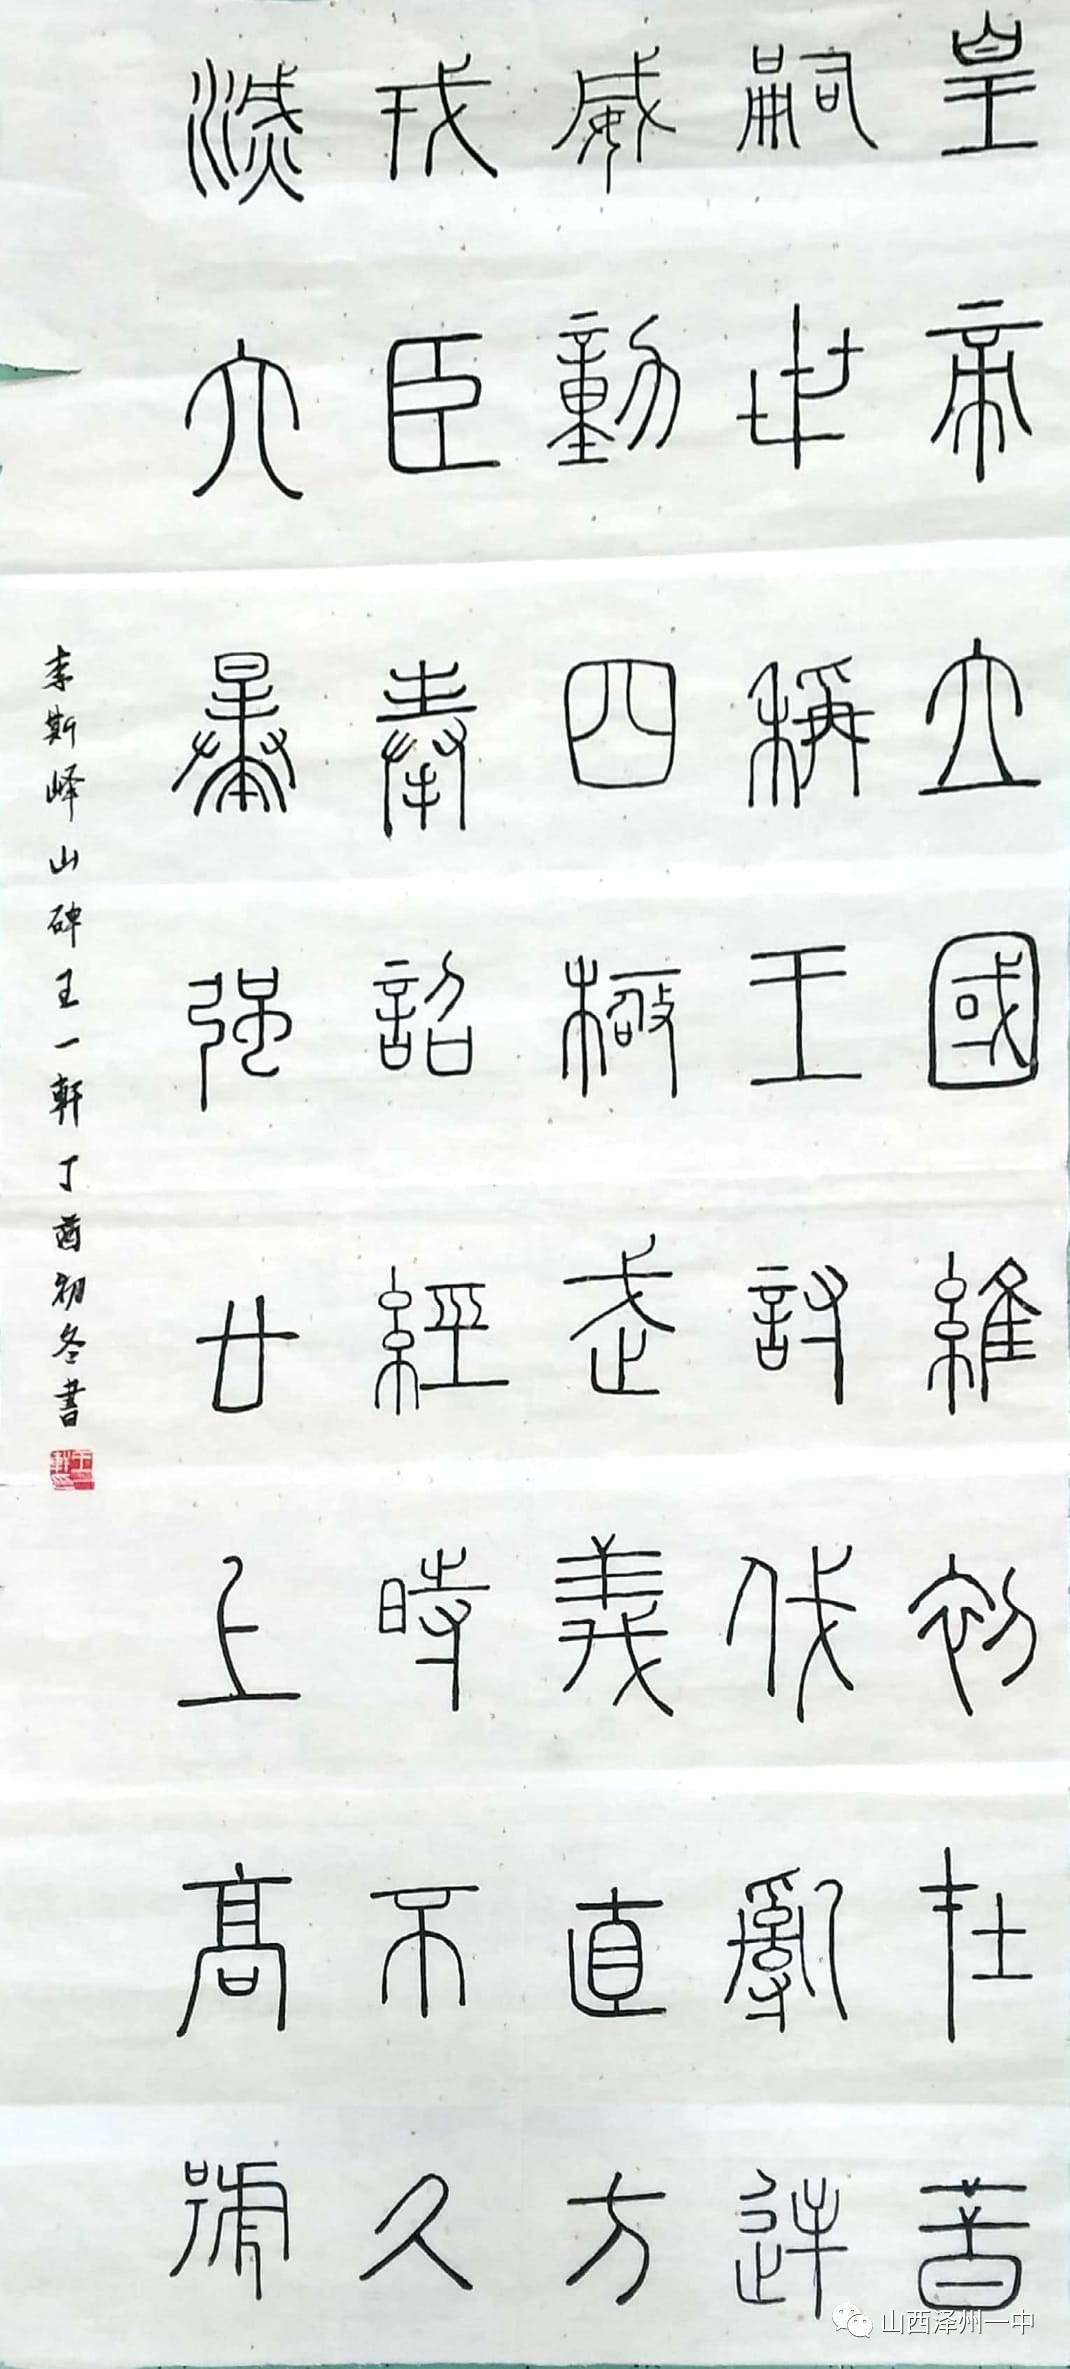 皇帝立國維初在昔
嗣世稱王討伐亂逆
威動四極武義直方
戎臣奉詔經時不久
滅六暴强廿上高號
李斯峄山碑王一軒丁酉初冬書
山西泽州一中